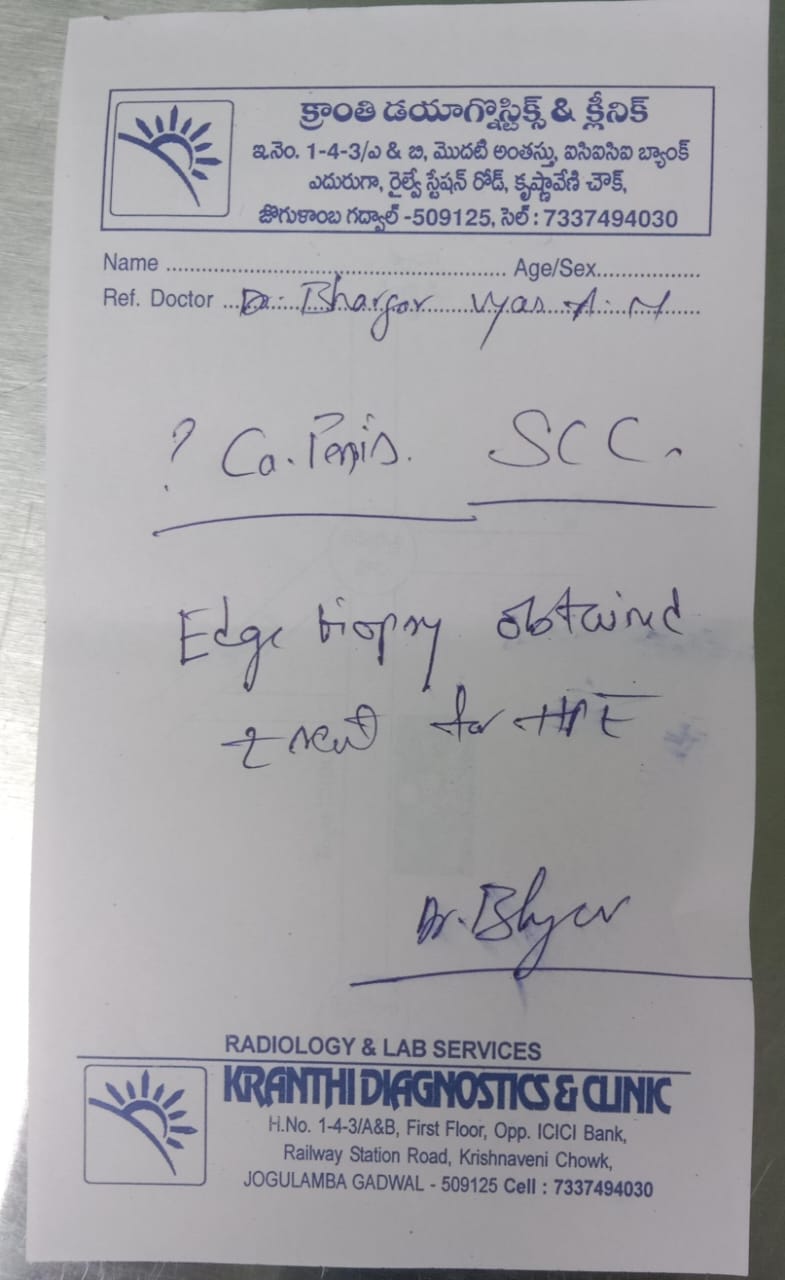 క్రాంతి డయాగ్నొస్టిక్స్ & క్లీనిక్
ఇ.నెం. 1-4-3/ఎ & బి, మొదటి అంతస్తు, ఐసిఐసిఐ బ్యాంక్
ఎదురుగా, రైల్వే స్టేషన్ రోడ్, కృష్ణావేణి చౌక్,
జోగుళాంబ గద్వాల్ -509125, సెల్ : 7337494030
Name ........................................................ Age/Sex.................
Ref. Doctor ... Dr. Bhargav Vyas A. M
? Ca. Penis. SCC.
Edge biopsy obtained
& sent for HPE
Dr.
RADIOLOGY & LAB SERVICES
KRANTHI DIAGNOSTICS & CLINIC
H.No. 1-4-3/A&B, First Floor, Opp. ICICI Bank,
Railway Station Road, Krishnaveni Chowk,
JOGULAMBA GADWAL - 509125 Cell : 7337494030